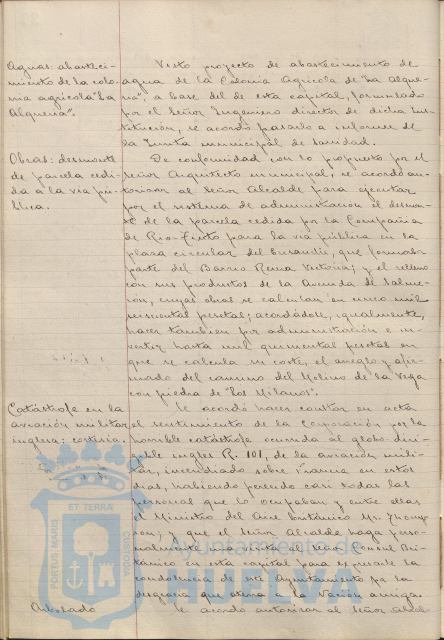 Aguas: abasteci-
miento de la colo-
nia agricola "La
Alqueria".
Visto proyecto de abastecimiento de
agua de la Colonia Agricola de "La Alque-
ria", a base del de esta capital, formulado
por el Señor Ingeniero director de dicha Ins-
titución, se acordó pasarlo a informe de
la Junta municipal de Sanidad.
Obras: desmonte
de parcela cedi-
da a la via pú-
blica.
De conformidad con lo propuesto por el
Señor Arquitecto municipal, se acordó au-
torizar al Señor Alcalde para ejecutar
por el sistema de administración el desmon-
te de la parcela cedida por la Compañia
de Rio-Tinto para la via pública en la
plaza circular del Ensanche, que formaba
parte del Barrio Reina Victoria; y el relleno
con sus productos de la Avenida de Salme-
rón, cuyas obras se calculan en cinco mil
seiscientas pesetas; acordándose, igualmente,
hacer tambien por administración e in-
vertir hasta mil quinientas pesetas en
que se calcula su coste, el arreglo y afir-
mado del camino del Molino de la Vega
con piedra de "Los Milanos".
Catástrofe en la
aviación militar
inglesa: cortesia.
Se acordó hacer constar en acta
el sentimiento de la Corporación por la
horrible catástrofe ocurrida al globo diri-
gible inglés R. 101, de la aviación mili-
tar, incendiado sobre Francia en estos
dias, habiendo perecido casi todas las
personas que lo ocupaban y entre ellas
el Ministro del Aire británico Mr. Thomp-
son; y que el Señor Alcalde haga perso-
nalmente una visita al Señor Cónsul Bri-
tánico en esta capital para expresarle la
condolencia de este Ayuntamiento por la
desgracia que aflige a la Nación amiga.
Arbolado
Se acordó autorizar al Señor Alcal-
PORTUS MARIS
ET TERRAE
CUSTODIA
Ayuntamiento de
HUELVA